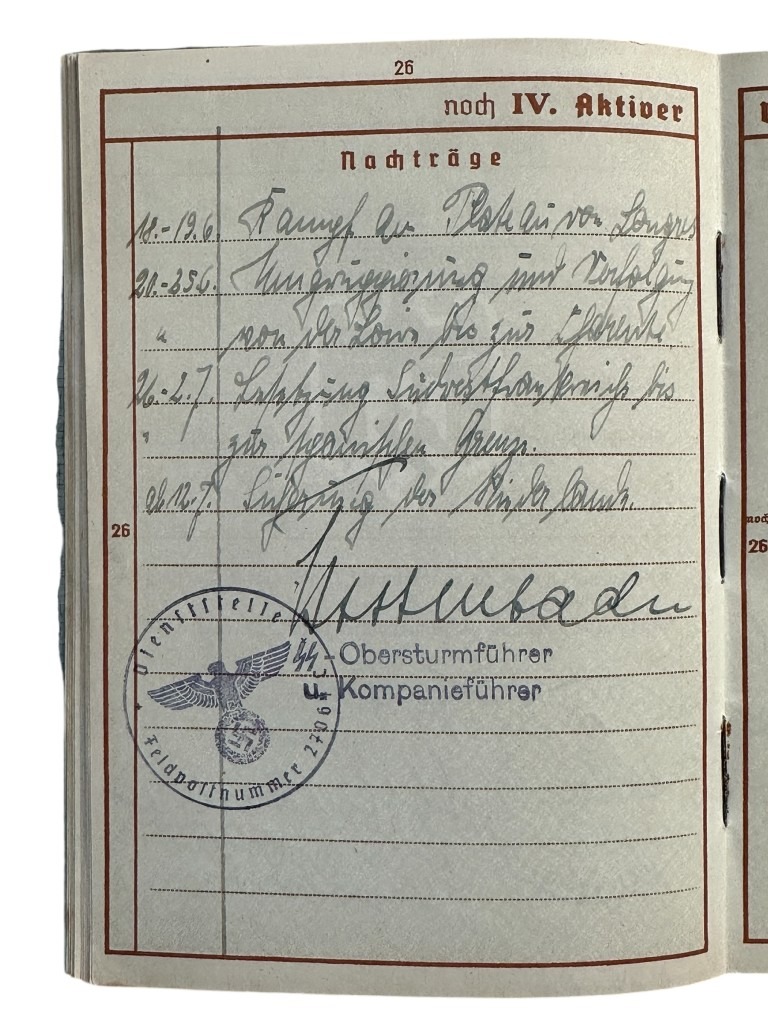 26
noch IV. Aktiver
Nachträge
18.-19.6. Kampf am Plateau von Langres
20.-25.6. Umgruppierung und Verfolgung
" von der Loire bis zur Charente.
26.-2.7. Besetzung Südwestfrankreichs bis
" zur spanischen Grenze.
ab 12.7. Sicherung der Niederlande.
26
noch
26
SS-Obersturmführer
u. Kompanieführer
Dienststelle
Feldpostnummer